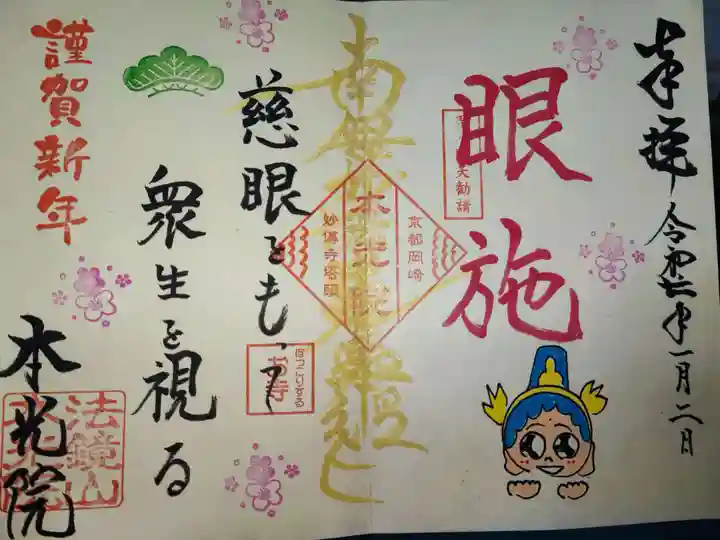 奉拝 令和七年一月二日
眼施
南無妙法蓮華経
京都岡崎
本光院
妙傳寺塔頭
慈眼をもって
ほっこりする
お寺
衆生を視る
謹賀新年
本光院
法鏡山